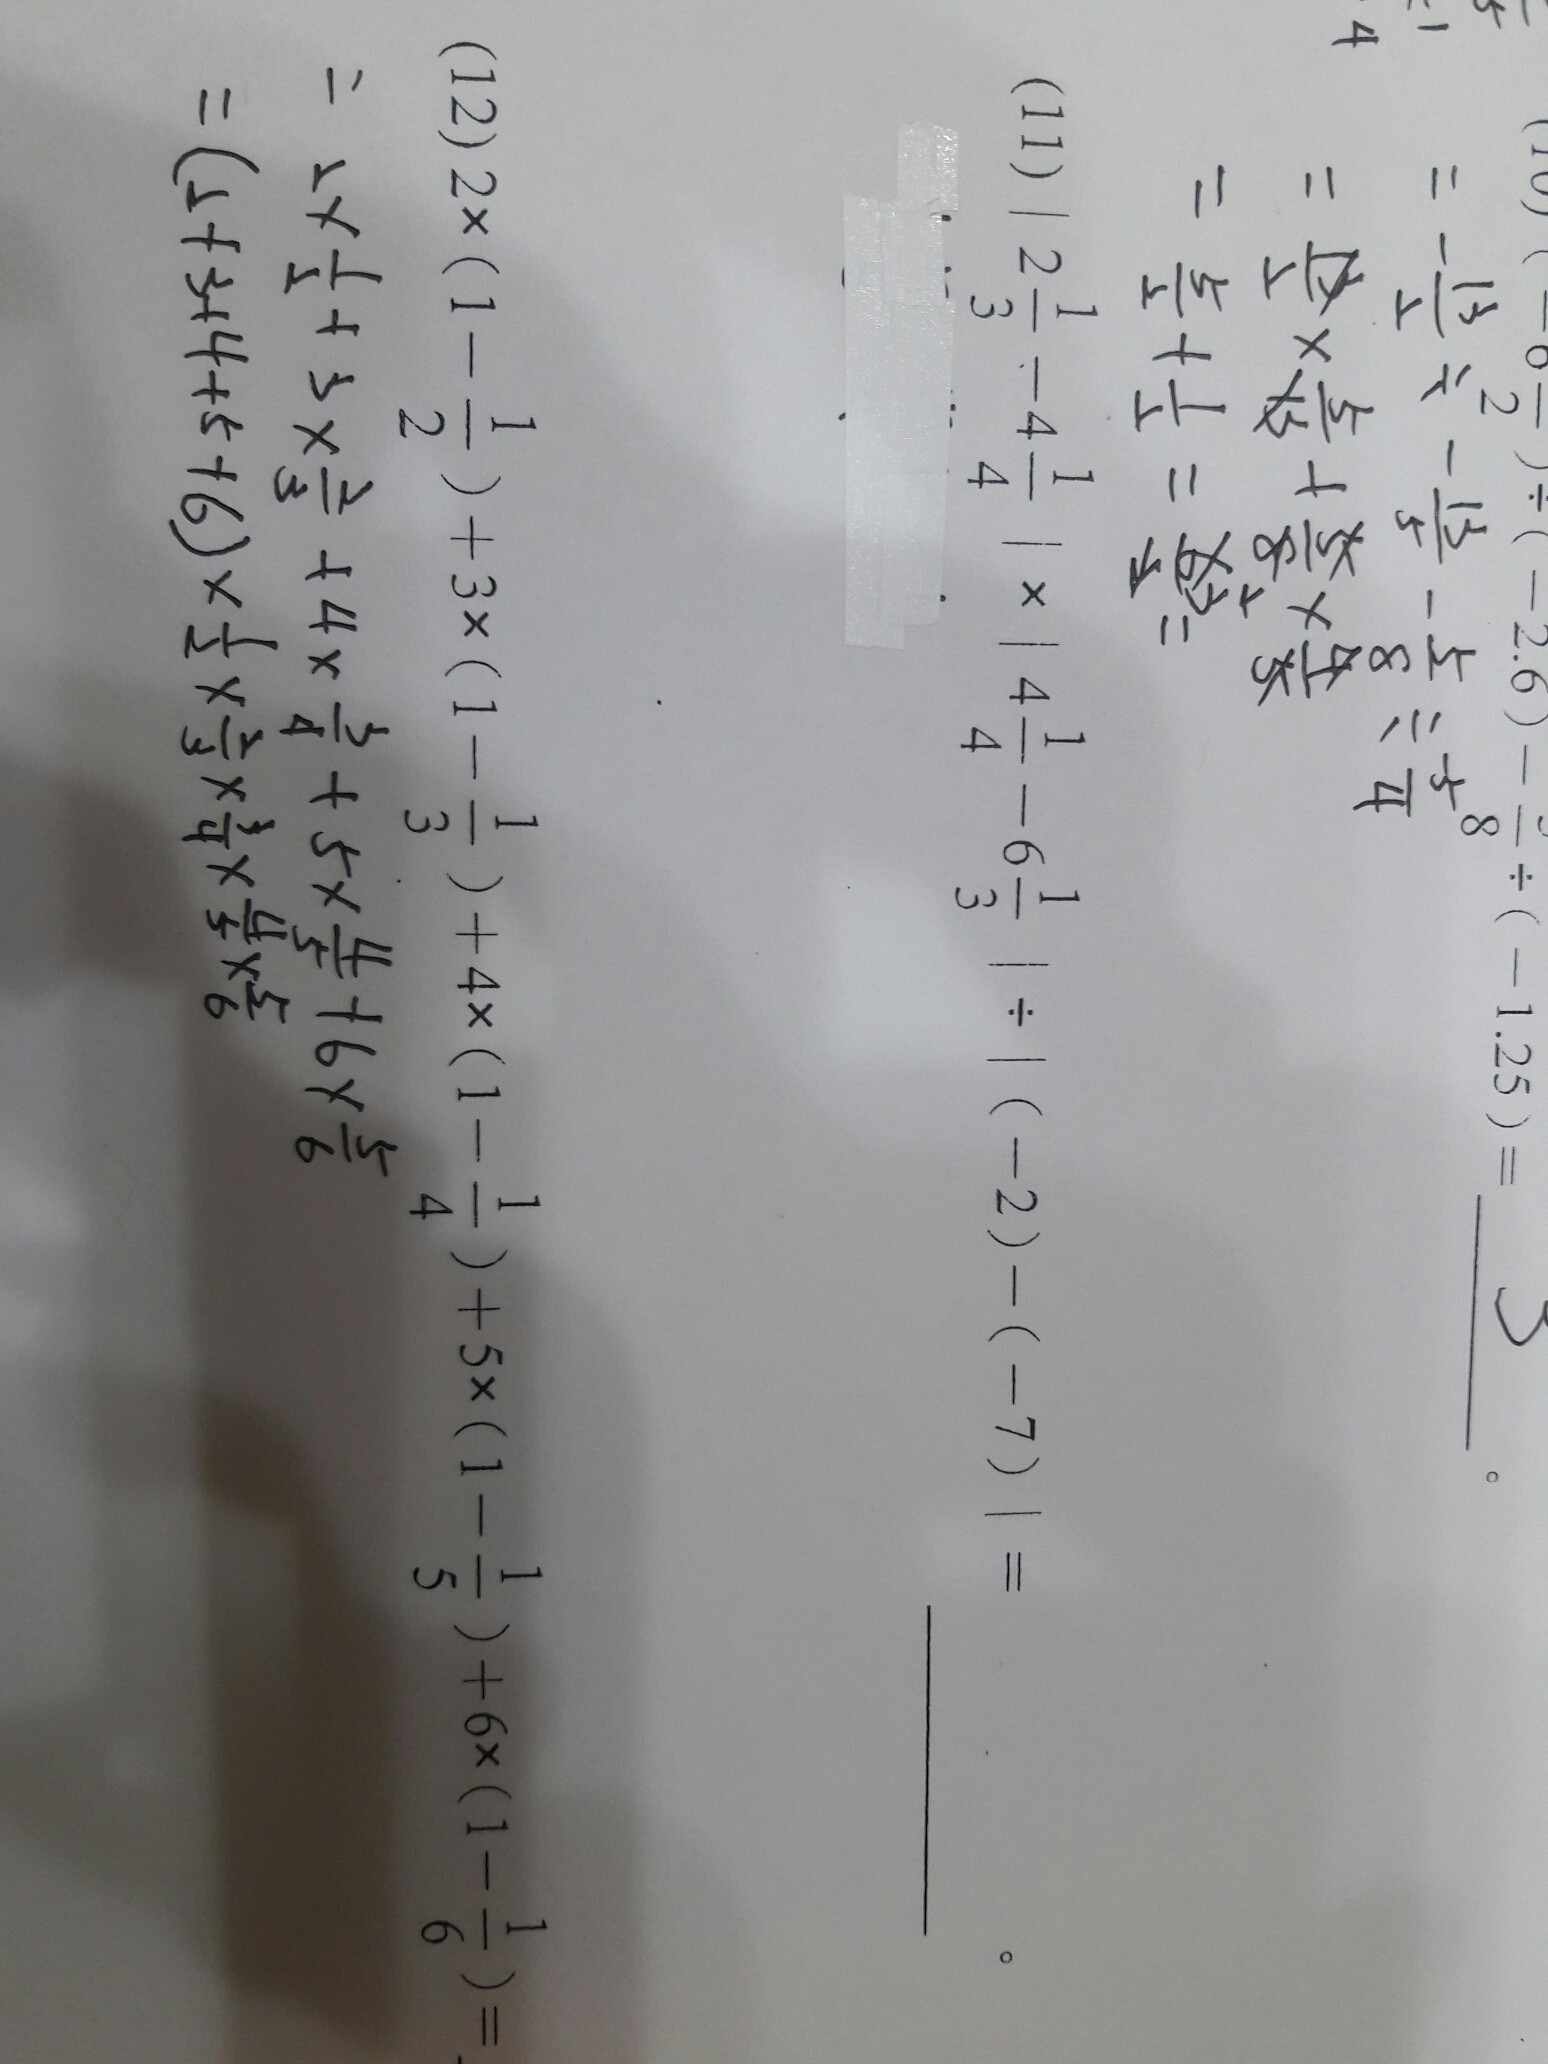 (10) (-6 1/2)÷(-2.6)-5/8÷(-1.25)= 3 。
= -13/2 ÷ -13/5 - 5/8 ÷ -5/4
= 13/2 × 5/13 + 5/8 × 4/5
= 5/2 + 1/2 = 6/2 =
(11) | 2 1/3 - 4 1/4 | × | 4 1/4 - 6 1/3 | ÷ | (-2) - (-7) | = ______ 。
(12) 2×(1-1/2)+3×(1-1/3)+4×(1-1/4)+5×(1-1/5)+6×(1-1/6)=
= 2×1/2+3×2/3+4×3/4+5×4/5+6×5/6
= (2+3+4+5+6)×1/2×2/3×3/4×4/5×5/6